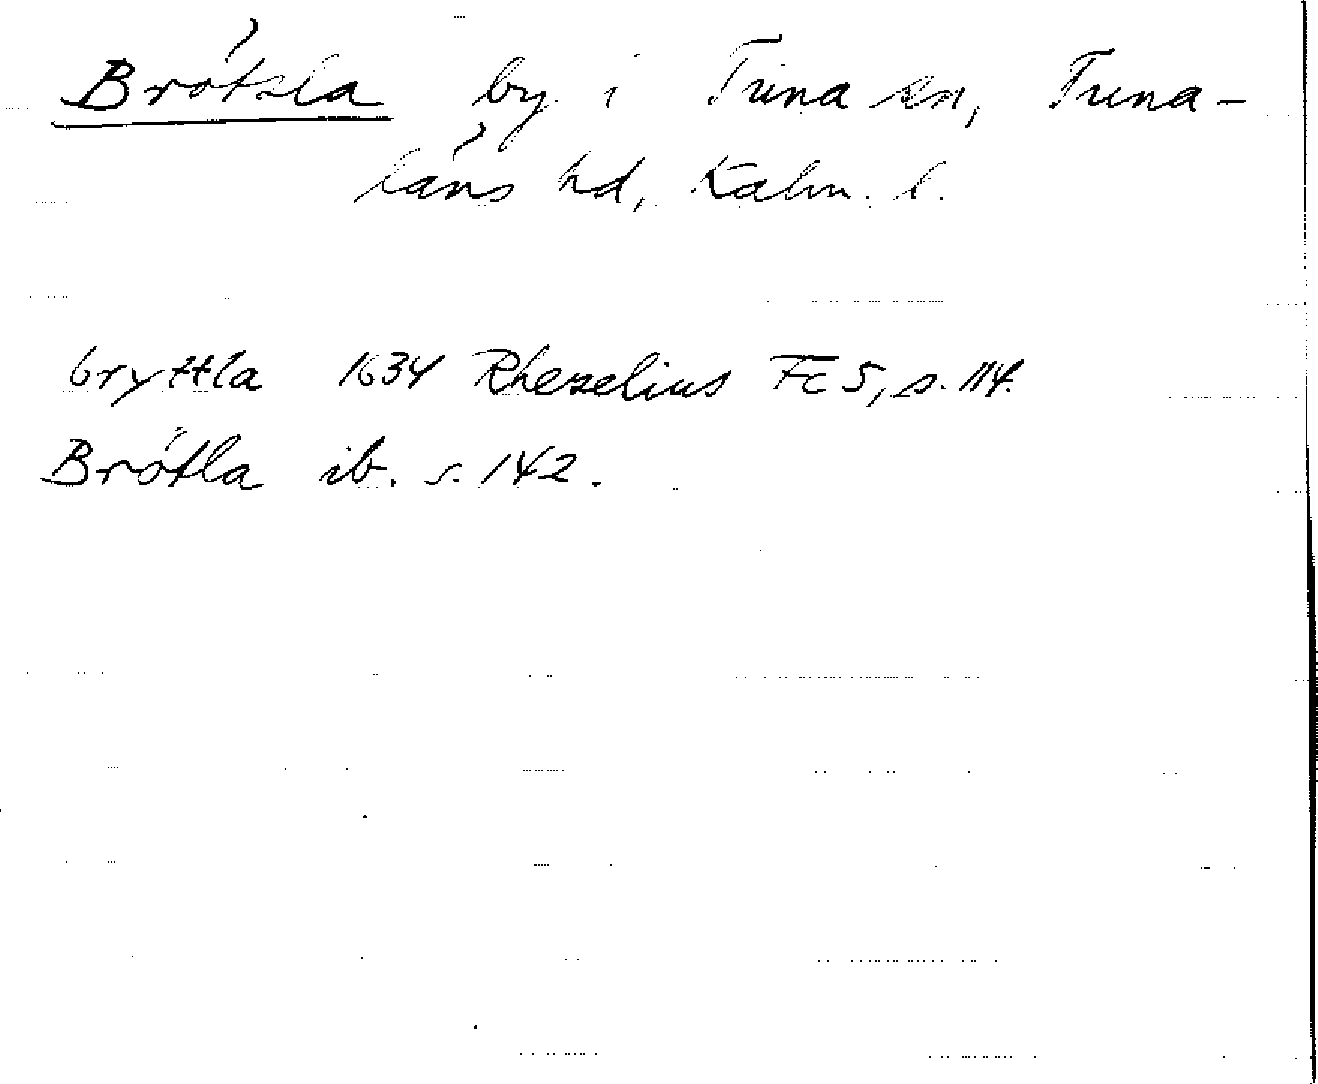 Brötsla by i Tuna sn, Tuna-
läns hd, Kalm. l.
bryttla 1634 Rhezelius Fc 5, s. 114.
Brötla ib. s. 142.